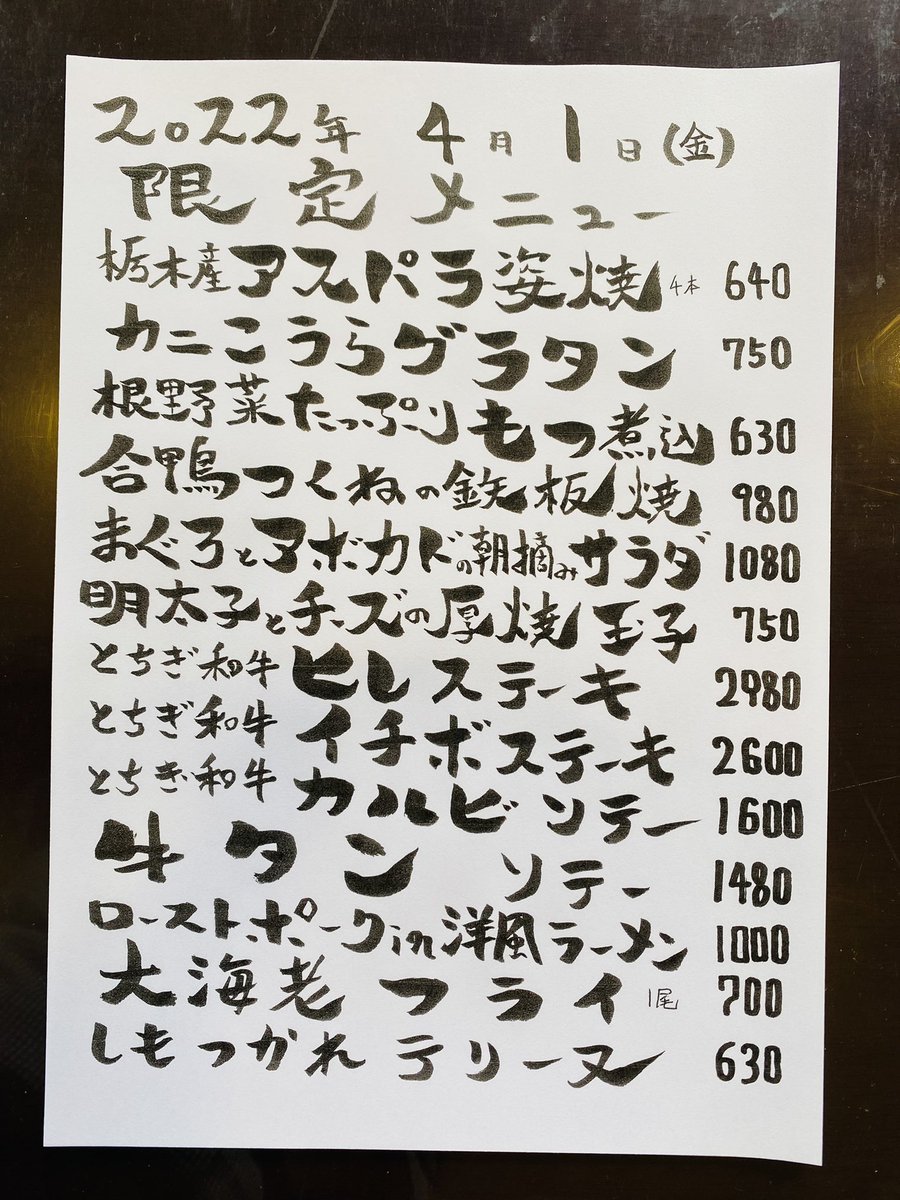 2022年 4月1日(金)
限定メニュー
栃木産アスパラ姿焼 4本 640
カニこうらグラタン 750
根野菜たっぷりもつ煮込 630
合鴨つくねの鉄板焼 980
まぐろとアボカドの朝摘みサラダ 1080
明太子とチーズの厚焼玉子 750
とちぎ和牛 ヒレステーキ 2980
とちぎ和牛 イチボステーキ 2600
とちぎ和牛 カルビソテー 1600
牛タン ソテー 1480
ローストポークin洋風ラーメン 1000
大海老フライ 1尾 700
しもつかれテリーヌ 630